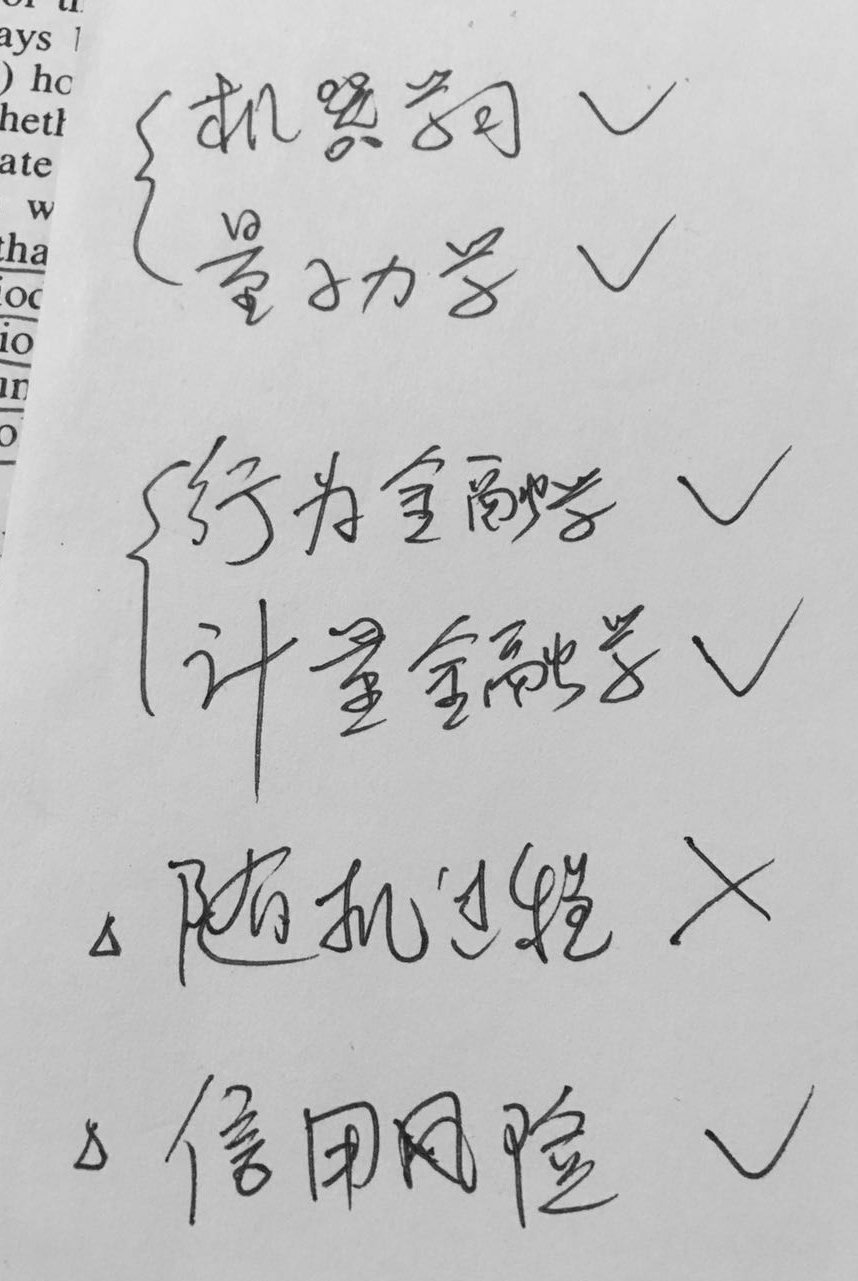 of th
ays
) ho
heth
ate
w
tha
ioc
io
un
o
{ 机器学习 ✓
量子力学 ✓
{ 行为金融学 ✓
计量金融学 ✓
△ 随机过程 ✗
△ 信用风险 ✓